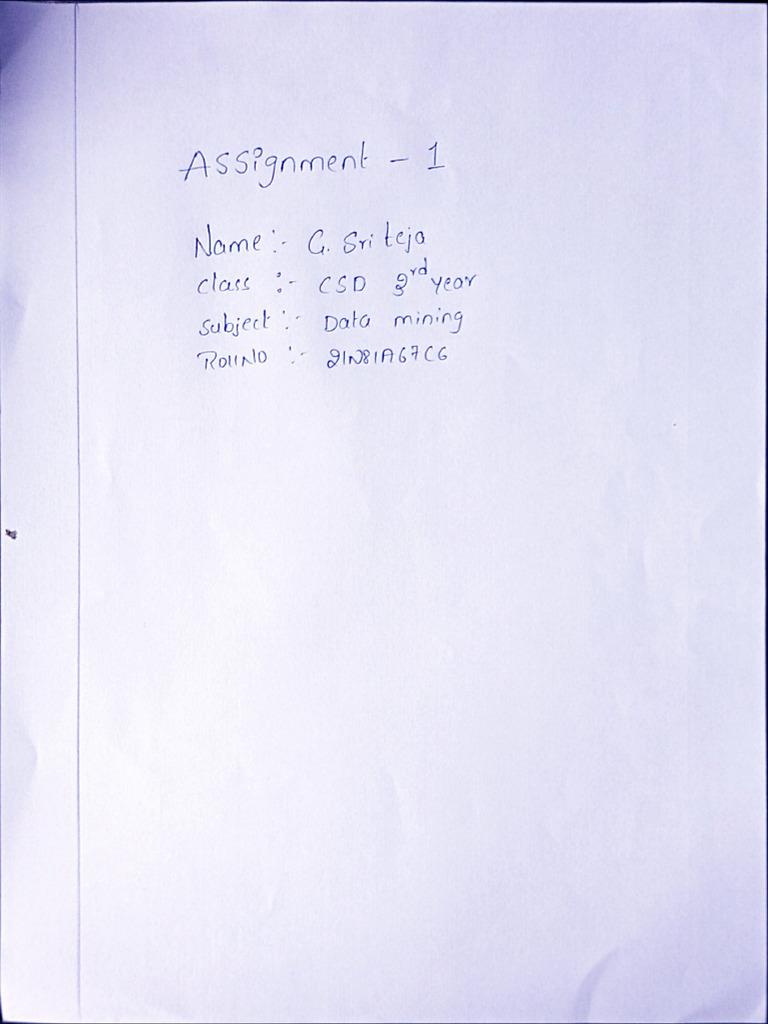 Assignment - 1
Name :- G. Sri teja
class :- CSD 3rd year
Subject :- Data mining
ROllNO :- 21N81A67C6